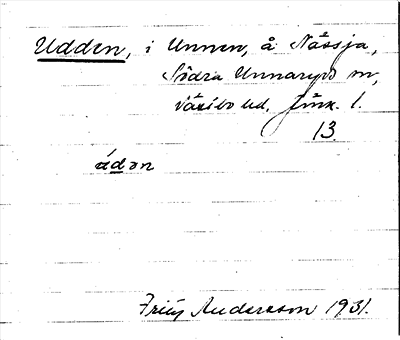 Udden, i Unnen, å Nässja,
Södra Unnaryds sn,
Västbo hd, Jönk. l.
13.
údən
Frits Andersson 1931.